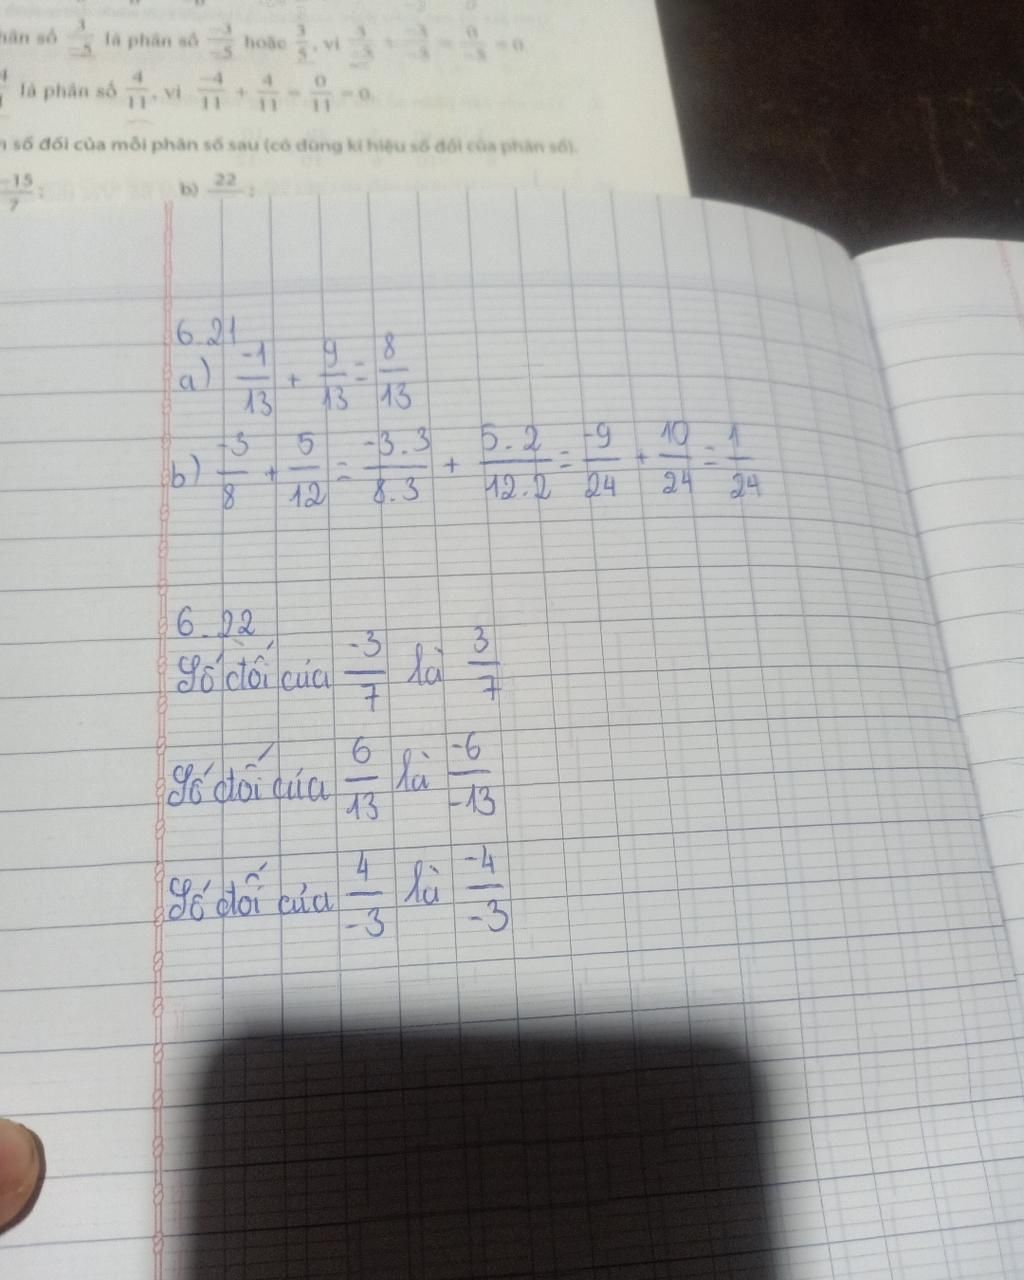 hân số 3/-5 là phân số -3/-5 hoặc 3/5, vì 3/-5 + -3/-5 = 0/-5 = 0.
là phân số 4/11, vì -4/11 + 4/11 = 0/11 = 0.
số đối của mỗi phân số sau (có dùng kí hiệu số đối của phân số).
-15/7 ; b) 22 ;
6.21
a) -1/13 + 9/13 = 8/13
b) -3/8 + 5/12 = -3.3/8.3 + 5.2/12.2 = -9/24 + 10/24 = 1/24
6.22
Số đối của -3/7 là 3/7
Số đối của 6/13 là -6/-13
Số đối của 4/-3 là -4/-3